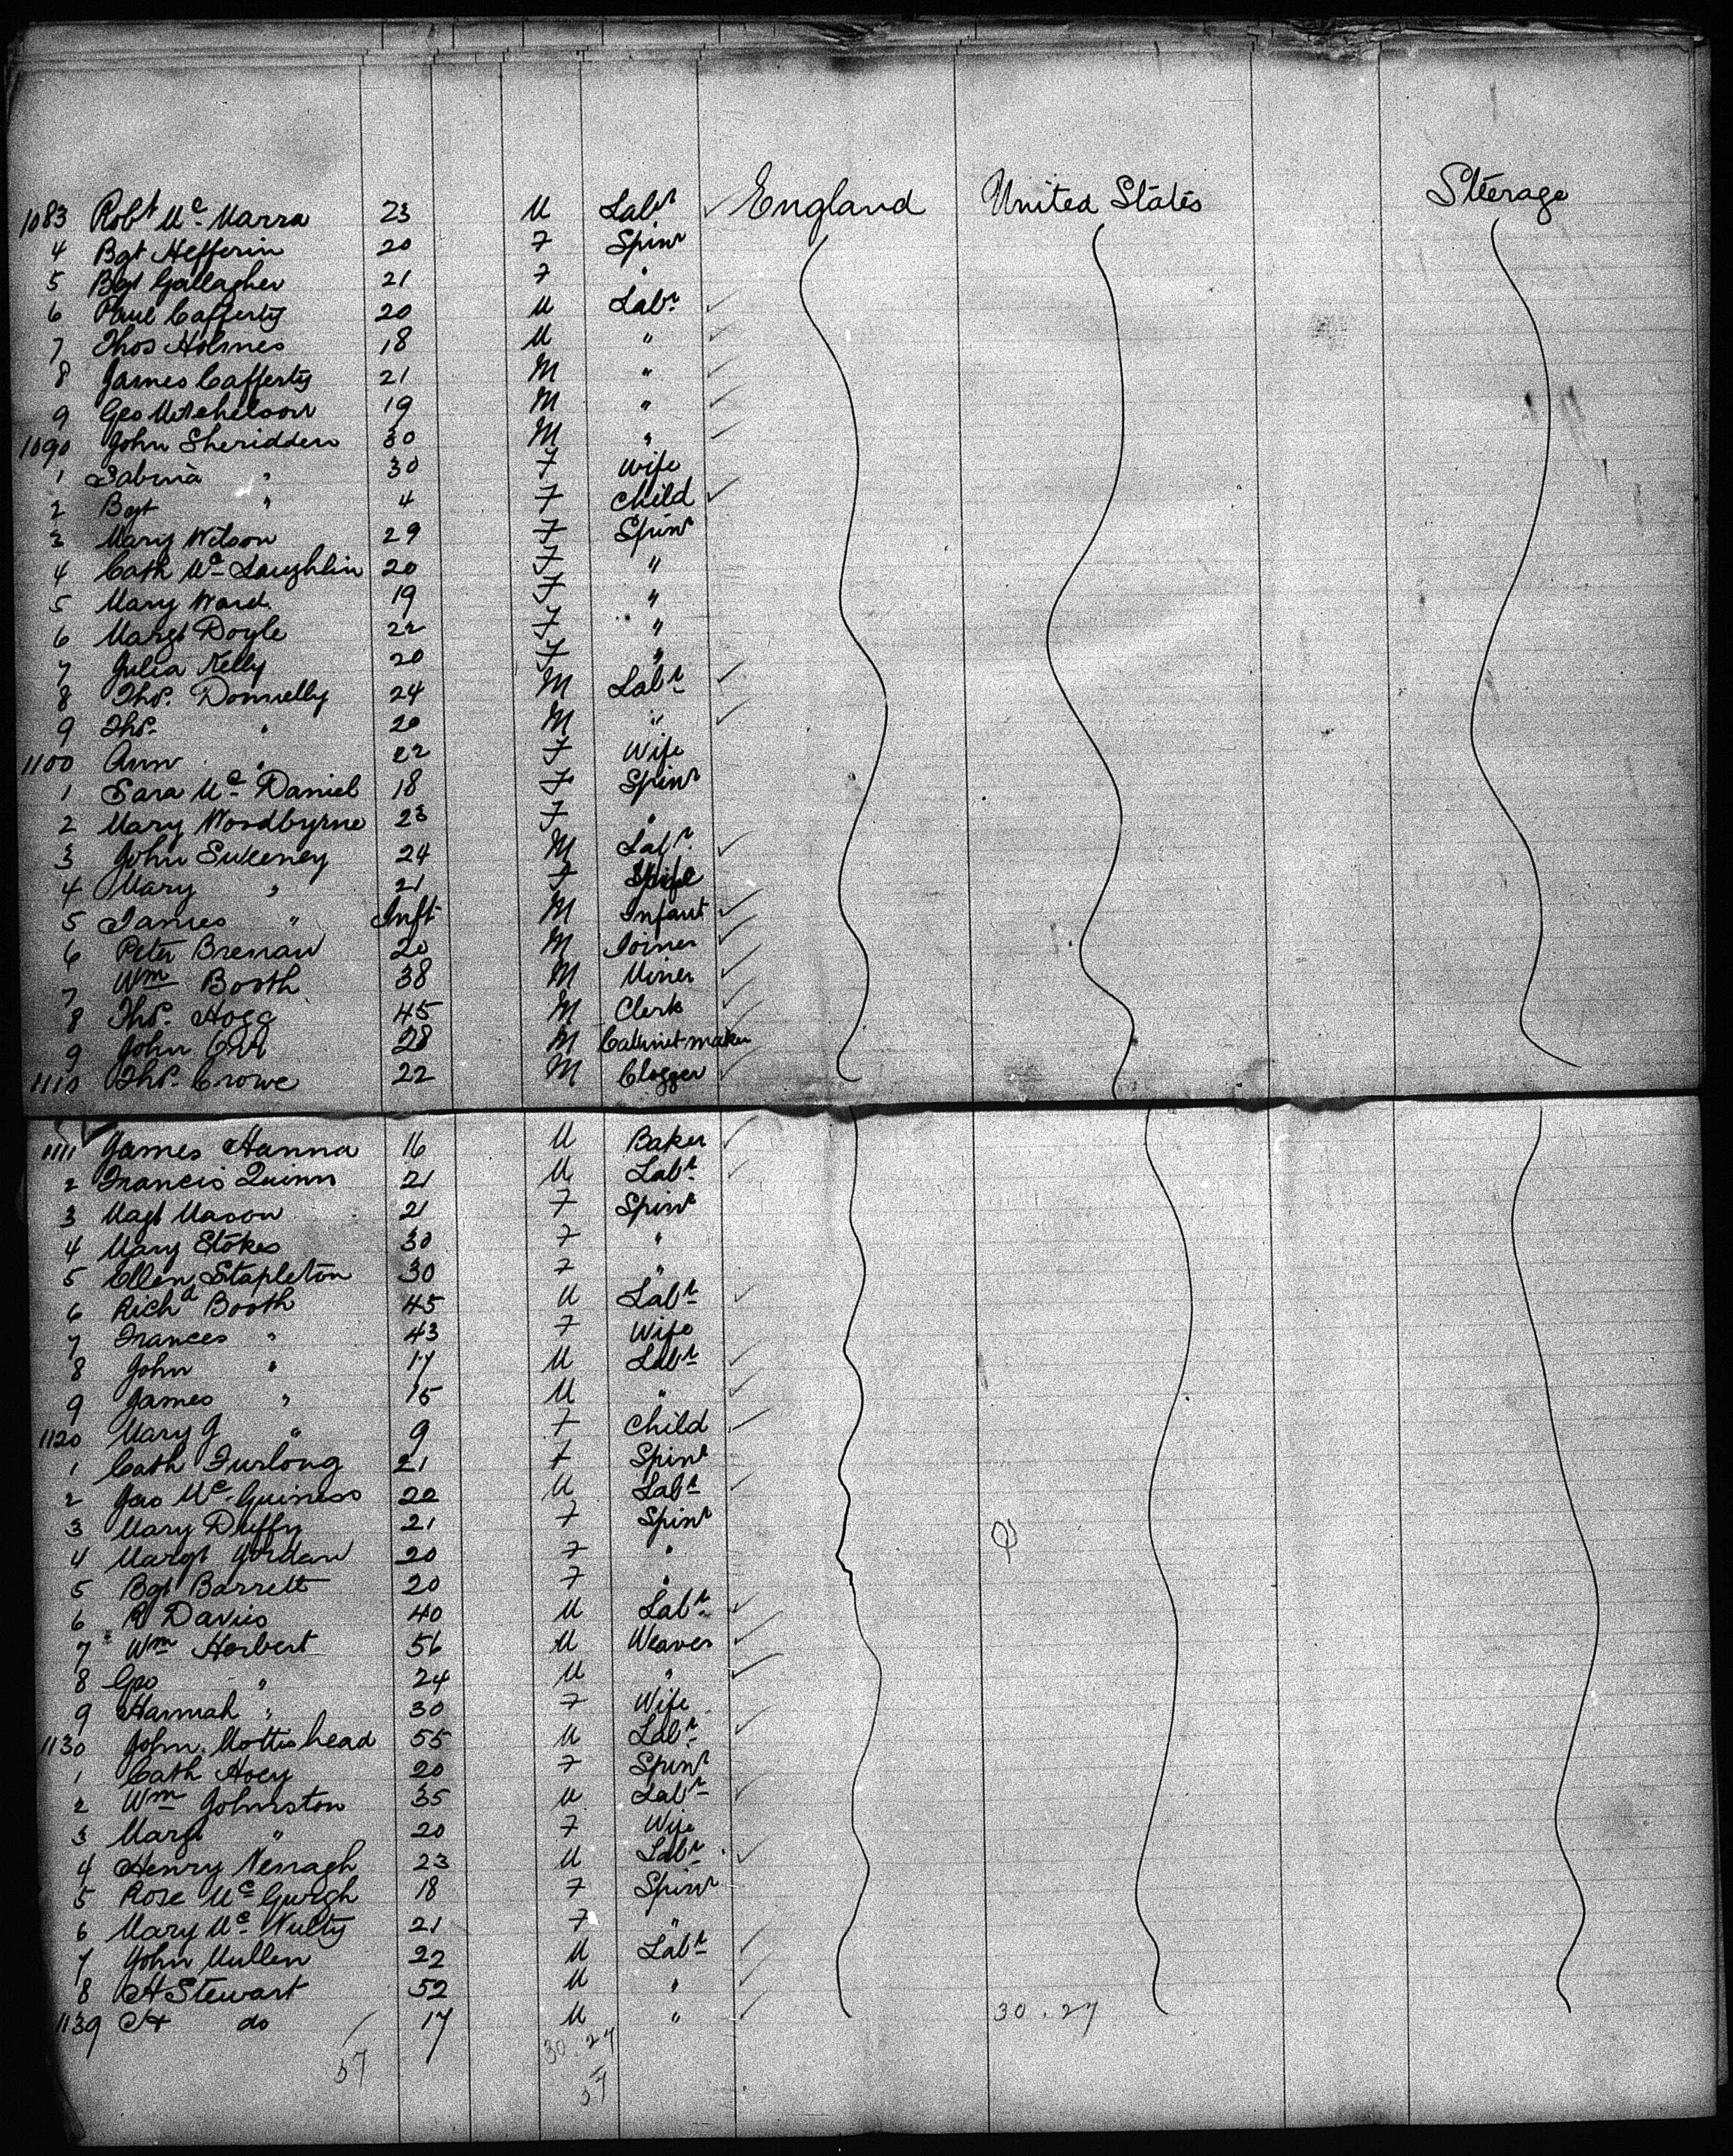 1083 Robt Mc Marra 23 M Labr England United States Steerage
4 Bgt Hefferin 20 F Spinr
5 Bgt Gallagher 21 F "
6 Paul Cafferty 20 M Labr
7 Thos Holmes 18 M "
8 James Cafferty 21 M "
9 Geo Mitchelson 19 M "
1090 John Sheridden 30 M "
1 Sabina " 30 F Wife
2 Bgt " 4 F Child
3 Mary Wilson 29 F Spinr
4 Cath Mc Laughlin 20 F "
5 Mary Ward 19 F "
6 Margt Doyle 22 F "
7 Julia Kelly 20 F "
8 Thos. Donnelly 24 M Labr
9 Thos. " 20 M "
1100 Ann " 22 F Wife
1 Sara Mc Daniel 18 F Spinr
2 Mary Woodbyrne 23 F "
3 John Sweeney 24 M Labr.
4 Mary " 21 F Wife
5 James " Inft M Infant
6 Peter Brenan 20 M Joiner
7 Wm Booth 38 M Miner
8 Thos. Hogg 45 M Clerk
9 John Orr 28 M Cabinet maker
1110 Thos. Crowe 22 M Clogger
1111 James Hanna 16 M Baker
2 Francis Quinn 21 M Labr
3 Magt Mason 21 F Spinr
4 Mary Stokes 30 F "
5 Ellen Stapleton 30 F "
6 Richd Booth 45 M Labr
7 Frances " 43 F Wife
8 John " 17 M Labr
9 James " 15 M "
1120 Mary J " 9 F Child
1 Cath Furlong 21 F Spinr
2 Jas Mc Guiness 22 M Labr
3 Mary Duffy 21 F Spinr
4 Margt Jordan 20 F "
5 Bgt Barrett 20 F "
6 R Davies 40 M Labr
7 Wm Herbert 56 M Weaver
8 Geo " 24 M "
9 Hannah " 30 F Wife
1130 John Mottishead 55 M Labr
1 Cath Hoey 20 F Spinr
2 Wm Johnston 35 M Labr
3 Margt " 20 F Wife
4 Henry Nenagh 23 M Labr
5 Rose Mc Gurgh 18 F Spinr
6 Mary Mc Nulty 21 F "
7 John Mullen 22 M Labr
8 A Stewart 52 M "
1139 A do 17 M " 30.27
57 30.27
57